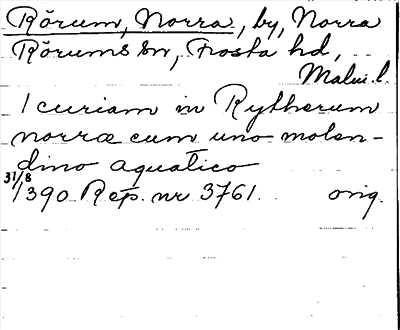 Rörum, Norra, by, Norra
Rörums sn, Frosta hd,
Malm. l.
1 curiam in Rytherum
norræ cum uno molen-
dino aquatico
31/8 1390 Rep. nr 3761. orig.